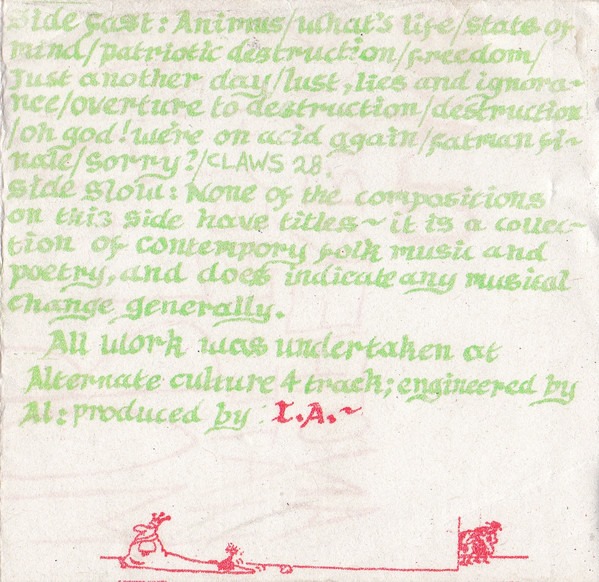 Side Fast: Animus/what's life/state of
mind/patriotic destruction/freedom/
Just another day/lust, lies and ignora-
nce/overture to destruction/destruction
/oh god! we're on acid again/fatman fi-
nale/sorry?/CLAWS 28.
Side Slow: None of the compositions
on this side have titles~it is a collec-
tion of contempory folk music and
poetry, and does indicate any musical
change generally.
All work was undertaken at
Alternate culture 4 track; engineered by
Al: produced by I.A.~